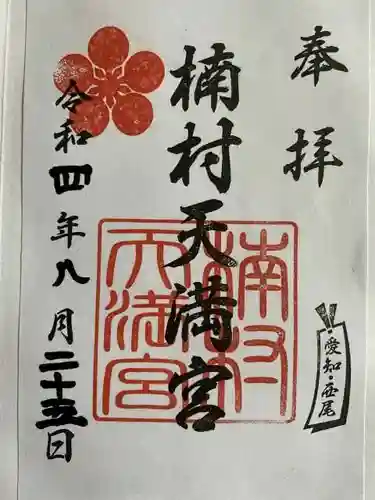 奉拝
楠村天満宮
楠村
天満宮
令和四年八月二十五日
愛知・西尾